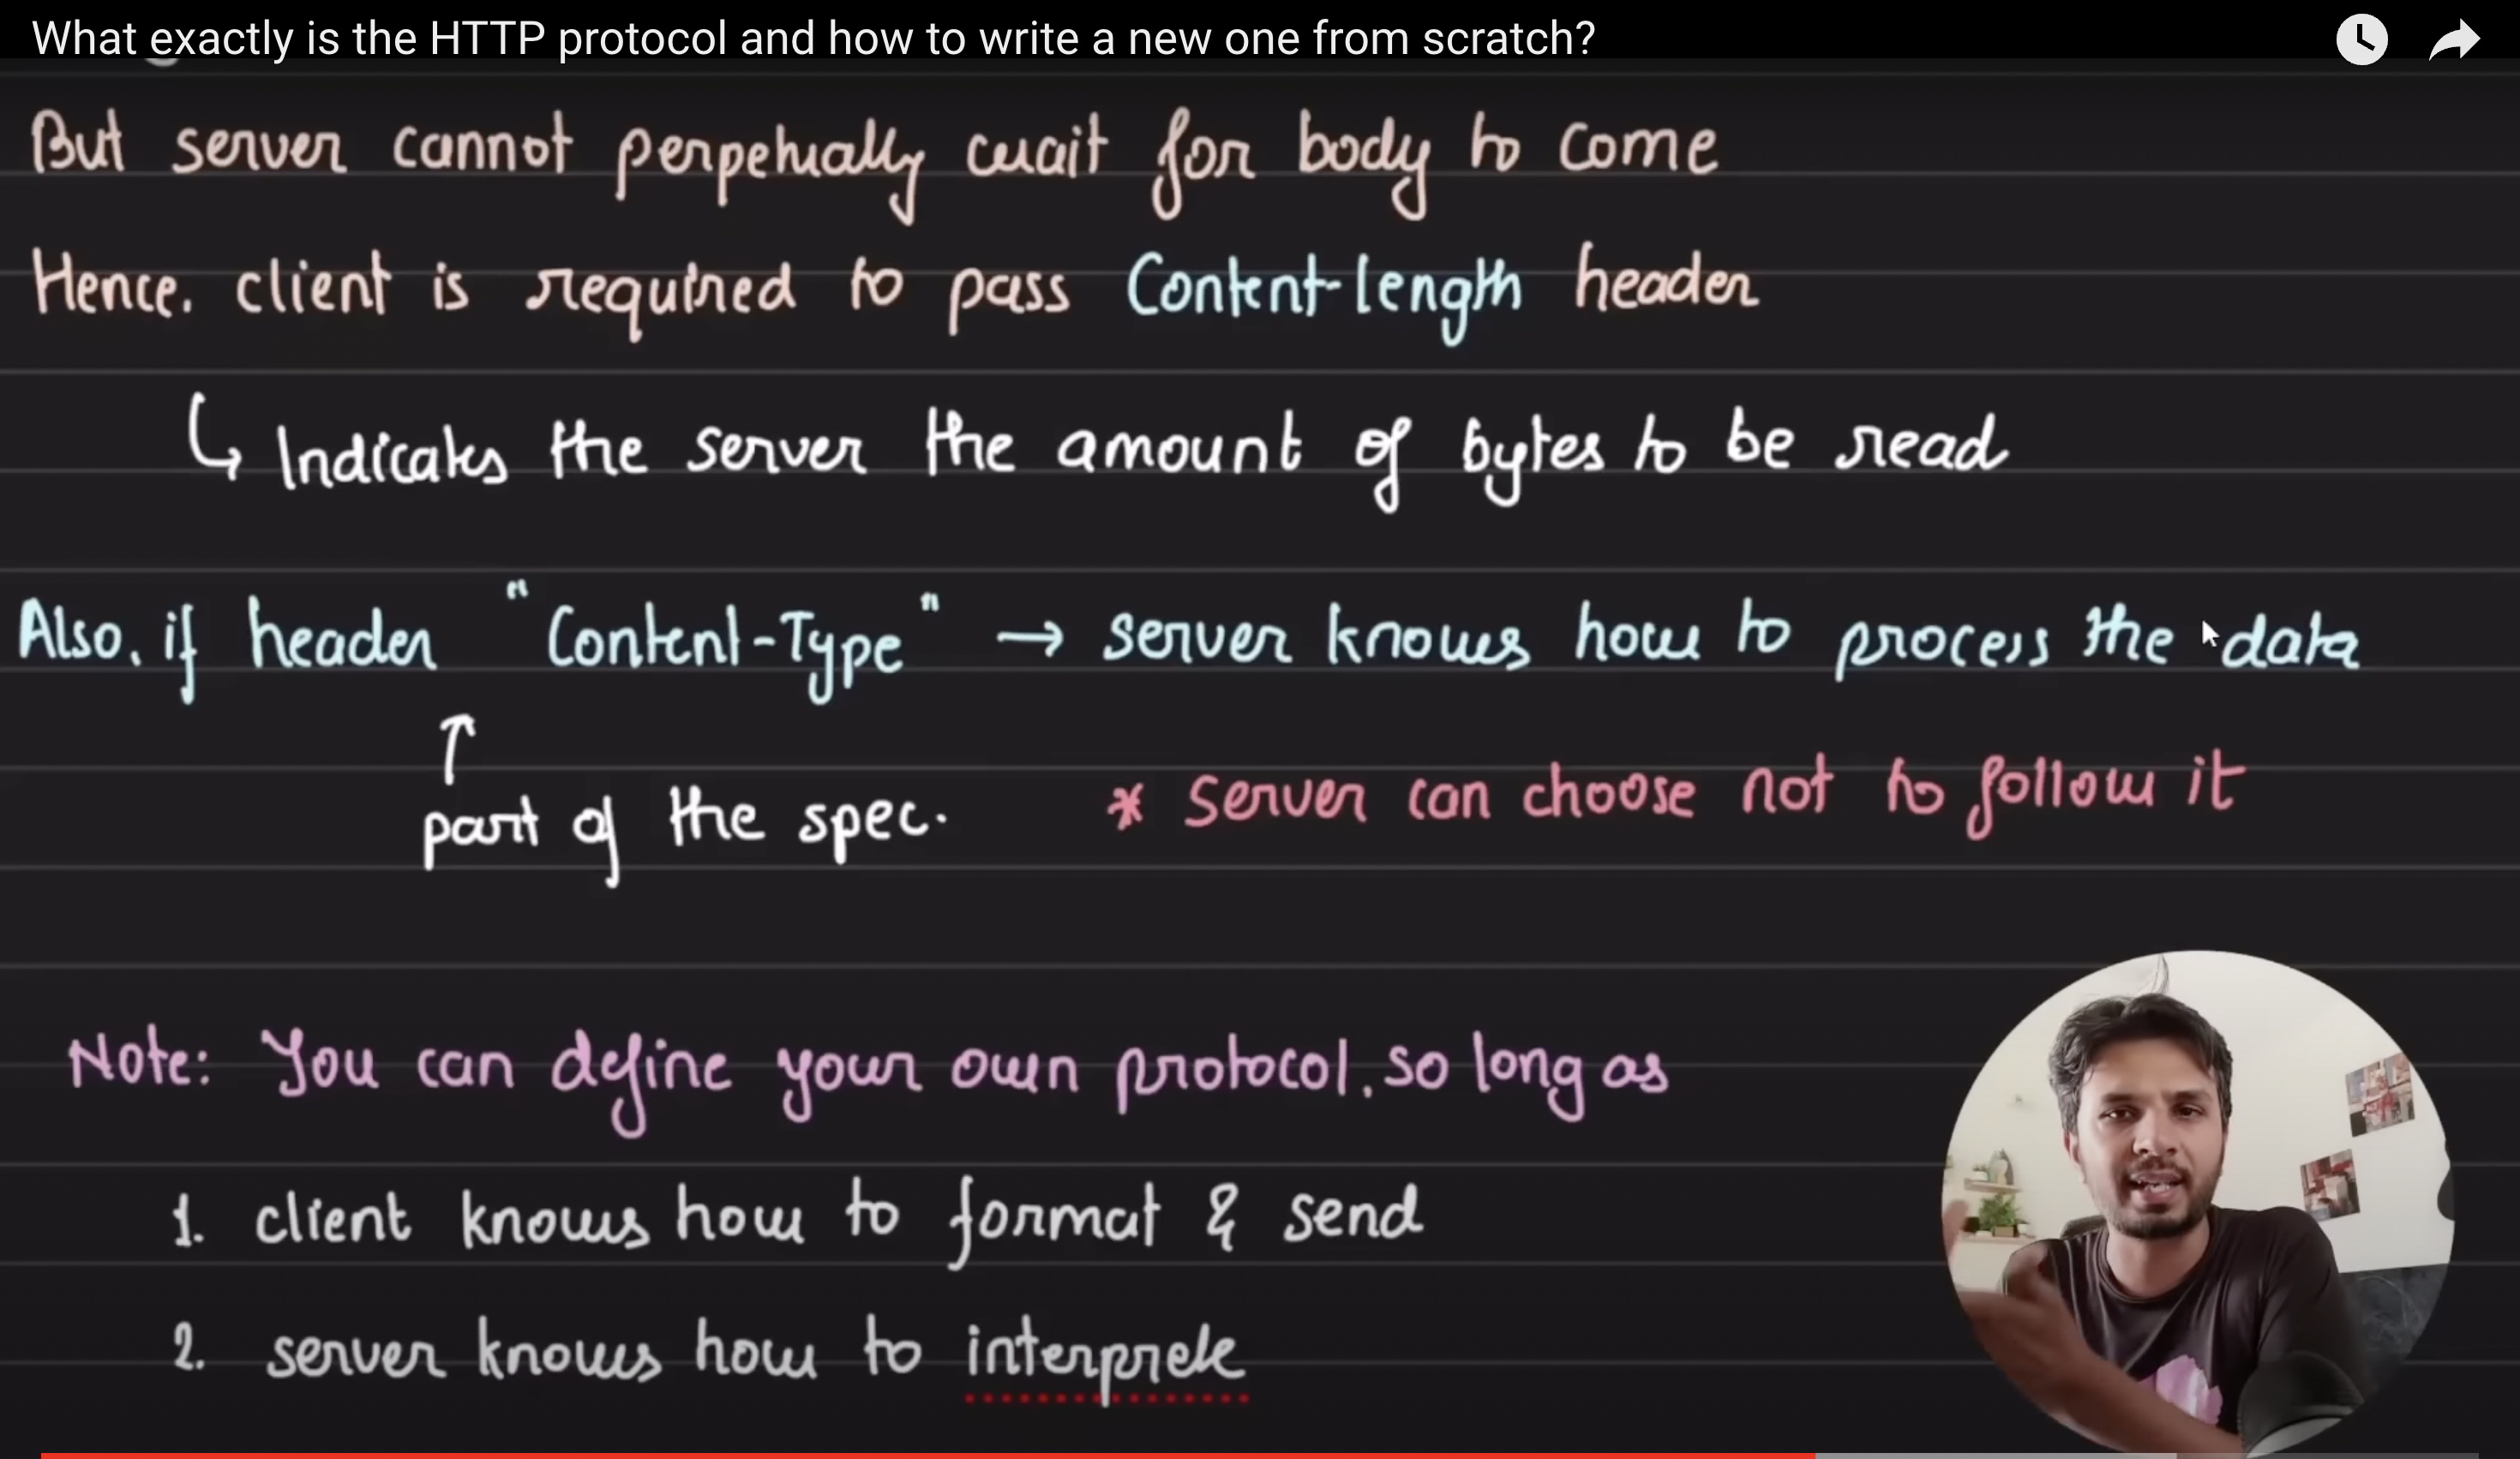 What exactly is the HTTP protocol and how to write a new one from scratch?
But server cannot perpetually wait for body to come
Hence, client is required to pass Content-length header
↳ Indicates the server the amount of bytes to be read
Also, if header "Content-Type" → server knows how to process the data
↑
part of the spec.
* Server can choose not to follow it
Note: You can define your own protocol, so long as
1. client knows how to format & send
2. server knows how to interprete